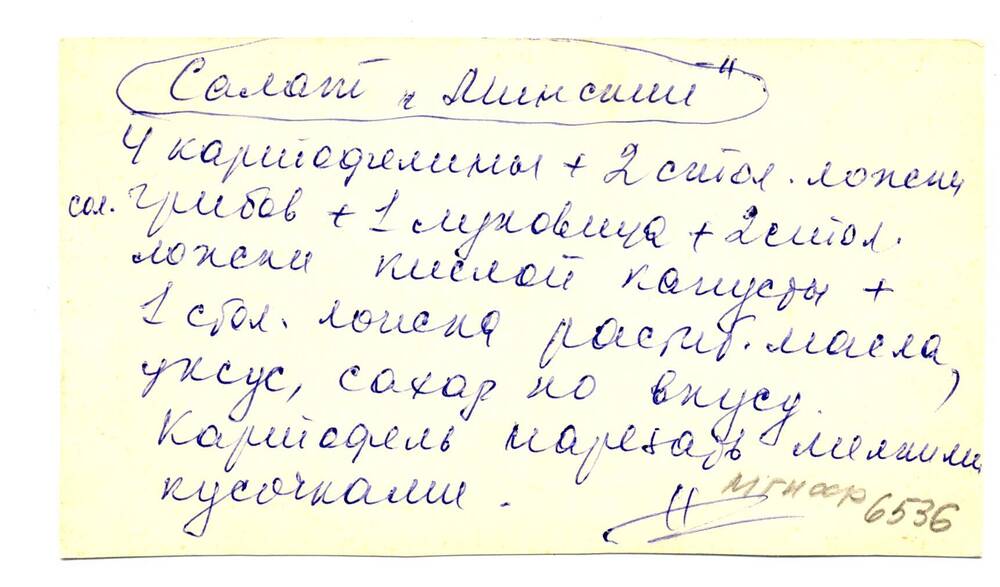 Салат „Минский"
4 картофелины + 2 стол. ложки
сол. грибов + 1 луковица + 2 стол.
ложки кислой капусты +
1 стол. ложка растит. масла,
уксус, сахар по вкусу.
Картофель нарезать мелкими
кусочками.
6536